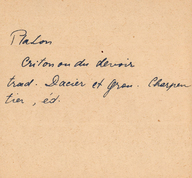 Platon
Criton ou du devoir
trad. Dacier et Grou. Charpen
tier, éd.